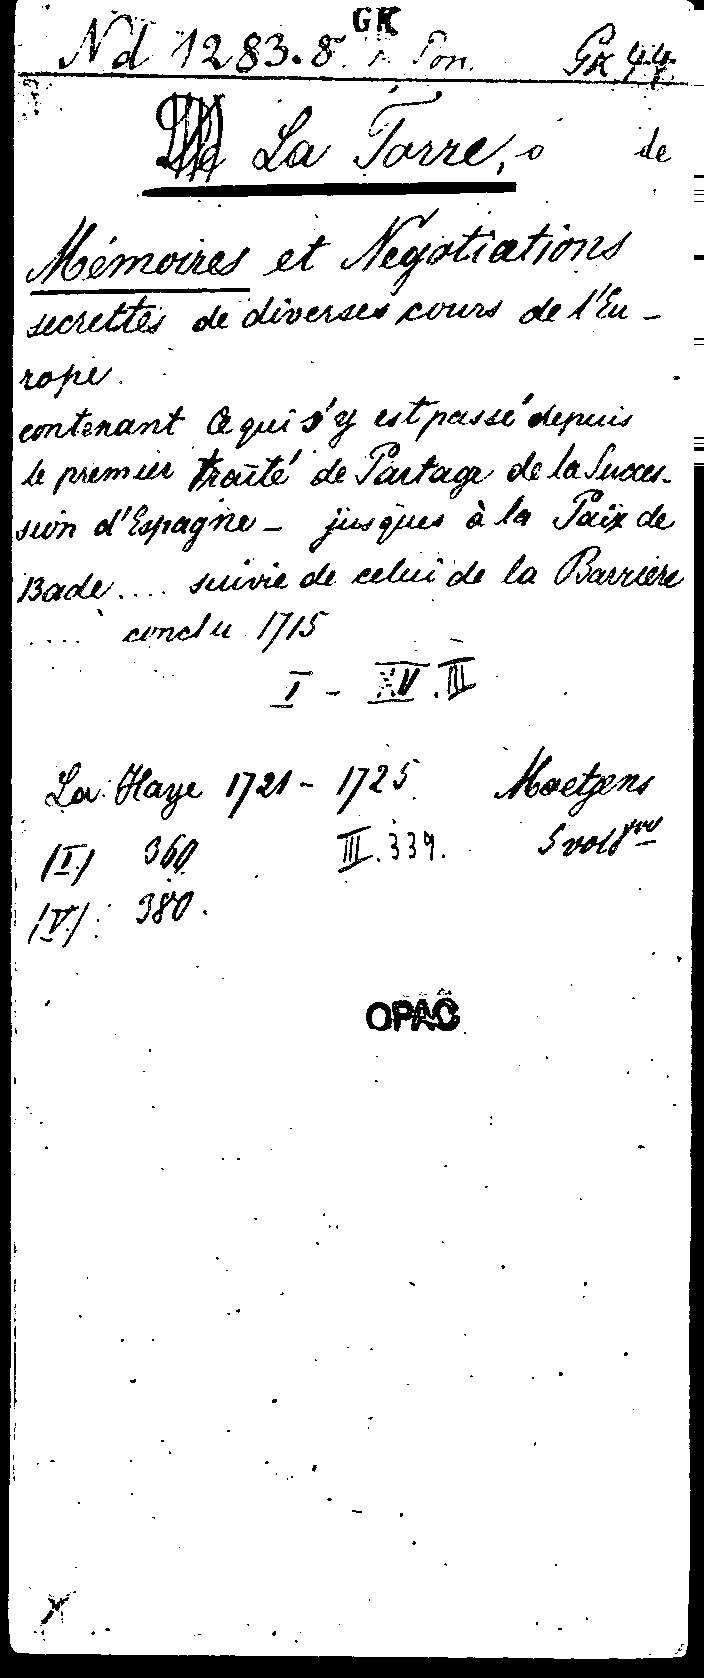 GK
Nd 1283.8. Pon. GK 44
La Torre, o de
Mémoires et Négotiations
secrettes de diverses cours de l'Eu-
rope.
contenant Ce qui s'y est passé depuis
le premier traité de Partage de la Succes-
sion d'Espagne - jusques à la Paix de
Bade .... suivie de celui de la Barriere
.... conclu 1715
I - XV. III
La Haye 1721 - 1725 Moetjens
(I.) 360 III. 339. 5 vol 8vo
(V.) : 380.
OPAC
X